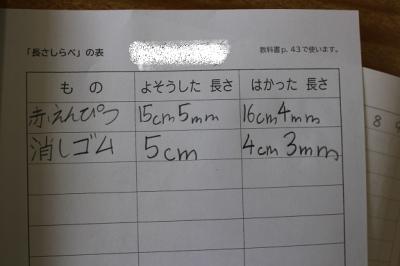 「長さしらべ」の表
教科書p.43で使います。
もの よそうした 長さ はかった 長さ
赤えんぴつ 15cm5mm 16cm4mm
消しゴム 5cm 4cm 3mm
8